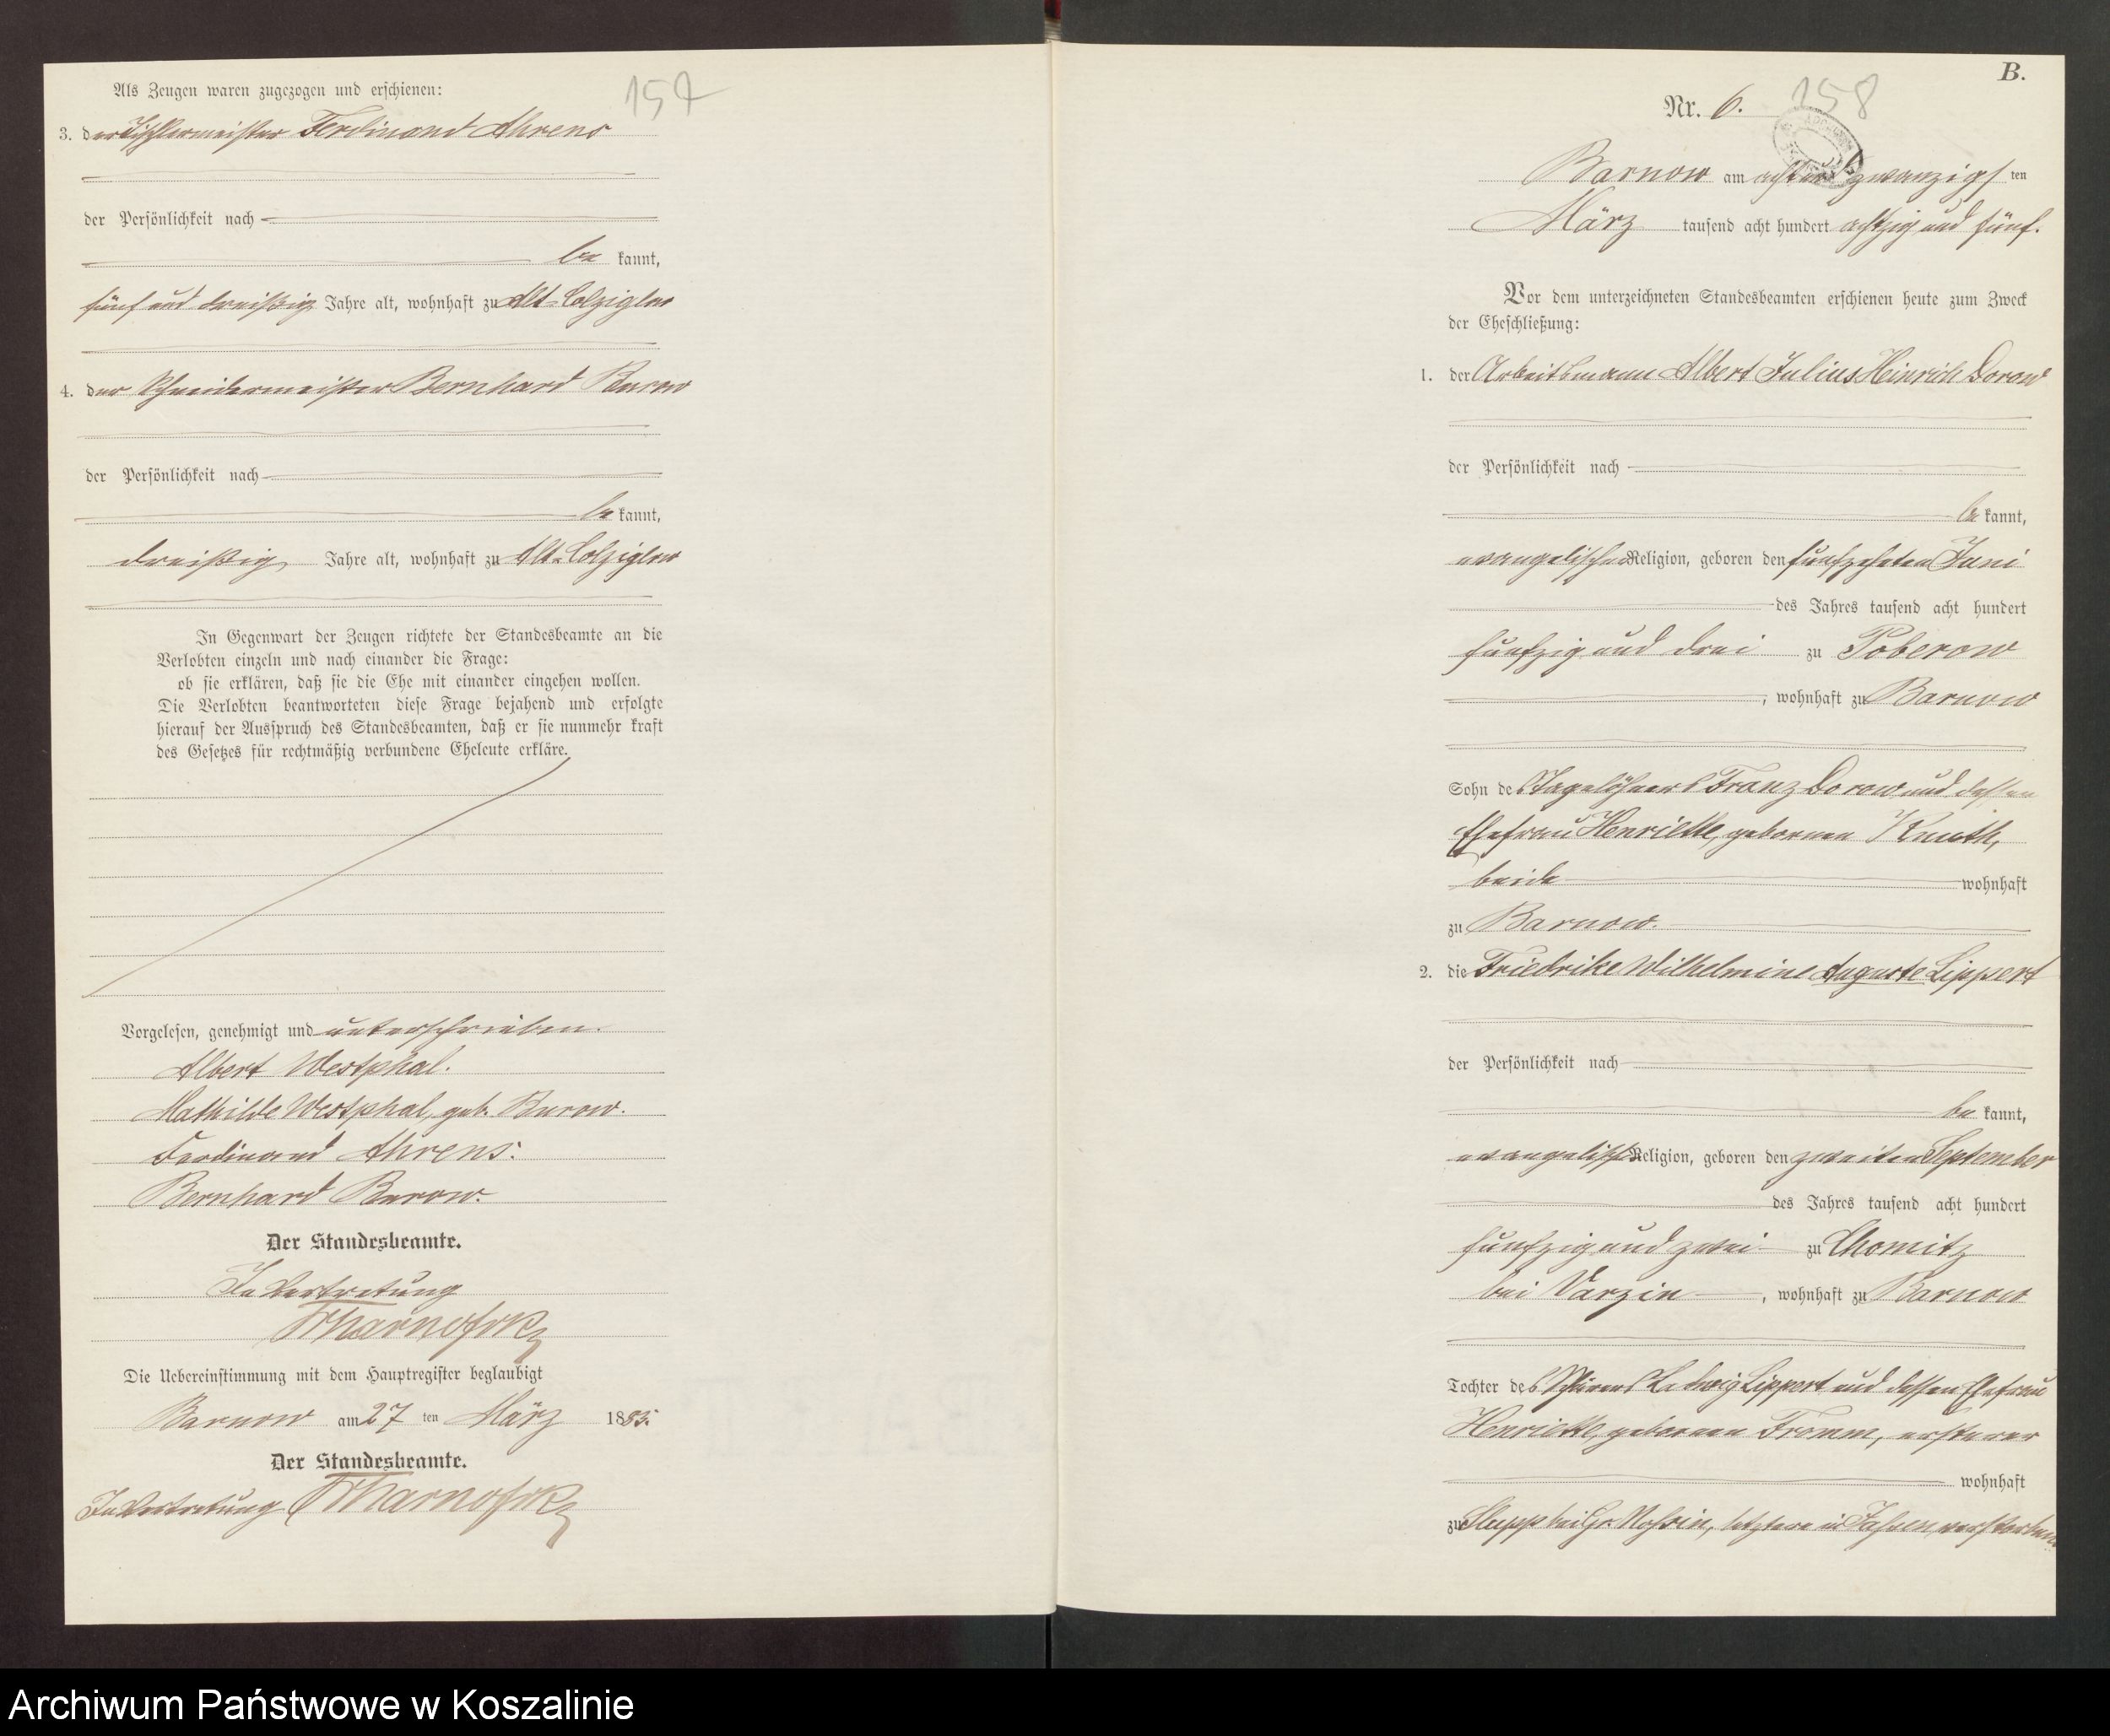 157
Als Zeugen waren zugezogen und erschienen:
3. der Tischlermeister Ferdinand Ahrens
der Persönlichkeit nach
be kannt,
fünf und dreißig Jahre alt, wohnhaft zu Alt-Colziglow
4. der Schneidermeister Bernhard Burow
der Persönlichkeit nach
be kannt,
dreißig Jahre alt, wohnhaft zu Alt-Colziglow
In Gegenwart der Zeugen richtete der Standesbeamte an die
Verlobten einzeln und nach einander die Frage:
ob sie erklären, daß sie die Ehe mit einander eingehen wollen.
Die Verlobten beantworteten diese Frage bejahend und erfolgte
hierauf der Ausspruch des Standesbeamten, daß er sie nunmehr kraft
des Gesetzes für rechtmäßig verbundene Eheleute erkläre.
Vorgelesen, genehmigt und unterschrieben.
Albert Westphal.
Mathilde Westphal, geb. Burow.
Ferdinand Ahrens.
Bernhard Burow.
Der Standesbeamte.
In Vertretung
Die Uebereinstimmung mit dem Hauptregister beglaubigt
Barnow am 27 ten März 1885.
Der Standesbeamte.
In Vertretung
B.
Nr. 6. 158
Barnow am acht und zwanzigs ten
März tausend acht hundert achtzig und fünf.
Vor dem unterzeichneten Standesbeamten erschienen heute zum Zweck
der Eheschließung:
1. der Arbeitsmann Albert Julius Heinrich Dorow
der Persönlichkeit nach
be kannt,
evangelischer Religion, geboren den funfzehnten Juni
des Jahres tausend acht hundert
funfzig und drei zu Poberow
, wohnhaft zu Barnow
Sohn des Tagelöhners Franz Dorow und dessen
Ehefrau Henriette, geborenen Knuth,
beide wohnhaft
zu Barnow.
2. die Friedrike Wilhelmine Auguste Lippert
der Persönlichkeit nach
be kannt,
evangelisch Religion, geboren den zweiten September
des Jahres tausend acht hundert
funfzig und zwei zu Chomitz
bei Varzin, wohnhaft zu Barnow
Tochter des Ludwig Lippert und dessen Ehefrau
Henriette, geborenen Fromm, ersterer
wohnhaft
zu bei Gr. Nossin, letztere in Jassen verstorben
Archiwum Państwowe w Koszalinie